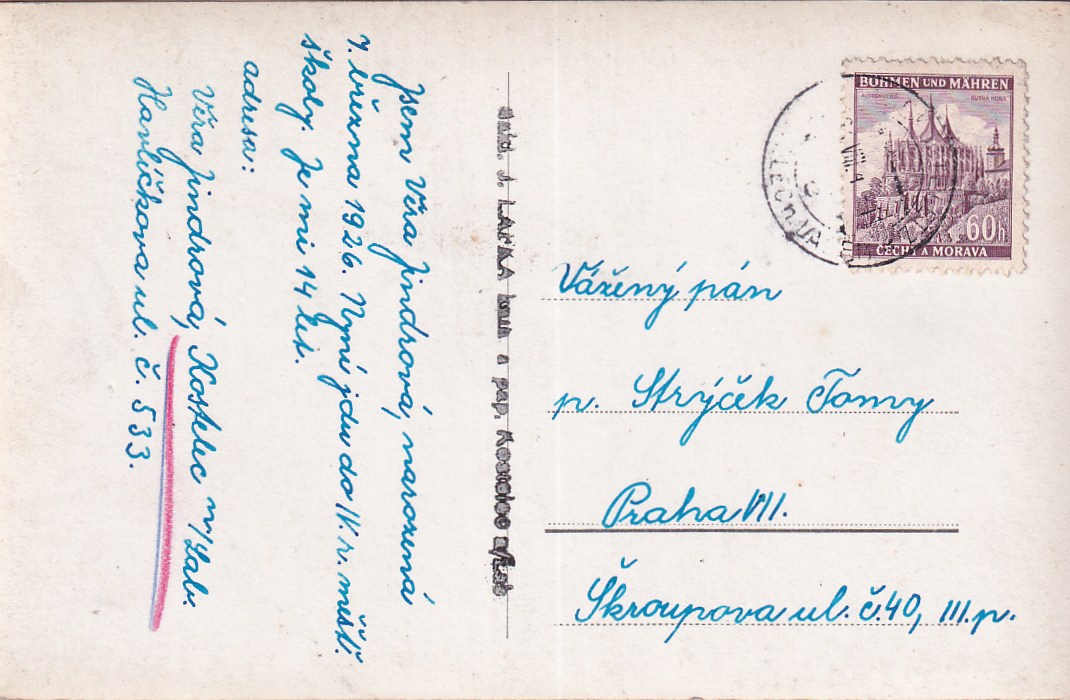 Jsem Věra Jindrová, narozená
7. března 1926. Nyní jdu do IV. r. měšť.
školy. Je mi 14 let.
adresa:
Věra Jindrová, Kostelec n/Lab.
Havlíčkova ul. č. 533.
LAŠKA knih. a pap. Kostelec n/Lab
BÖHMEN UND MÄHREN
KUTNÁ HORA
60h
ČECHY A MORAVA
Vážený pán
p. Strýček Tomy
Praha VII.
Škroupova ul. č. 40, III. p.